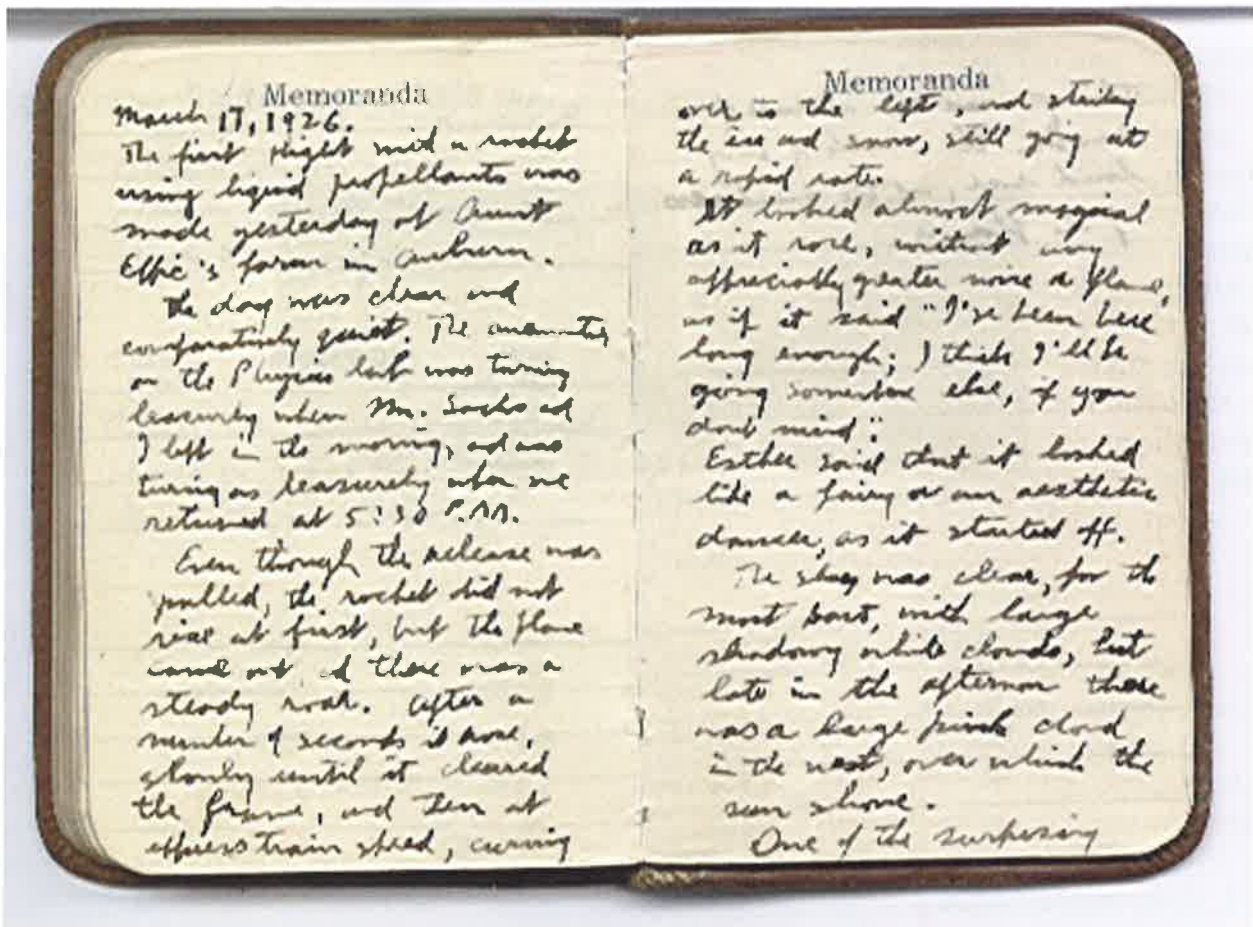 Memoranda
March 17, 1926.
The first flight with a rocket
using liquid propellants was
made yesterday at Aunt
Effie's farm in Auburn.
The day was clear and
comparatively quiet. The anemometer
on the Physics lab was turning
leasurely when Mr. Sachs and
I left in the morning, and was
turning as leasurely when we
returned at 5:30 P.M.
Even though the release was
pulled, the rocket did not
rise at first, but the flame
came out, and there was a
steady roar. After a
number of seconds it rose,
slowly until it cleared
the frame, and then at
express train speed, curving
Memoranda
over to the left, and striking
the ice and snow, still going at
a rapid rate.
It looked almost magical
as it rose, without any
appreciably greater noise or flame,
as if it said "I've been here
long enough; I think I'll be
going somewhere else, if you
dont mind".
Esther said that it looked
like a fairy or an aesthetic
dancer, as it started off.
The sky was clear, for the
most part, with large
shadowy white clouds, but
late in the afternoon there
was a large pink cloud
in the west, over which the
sun shone.
One of the surprising